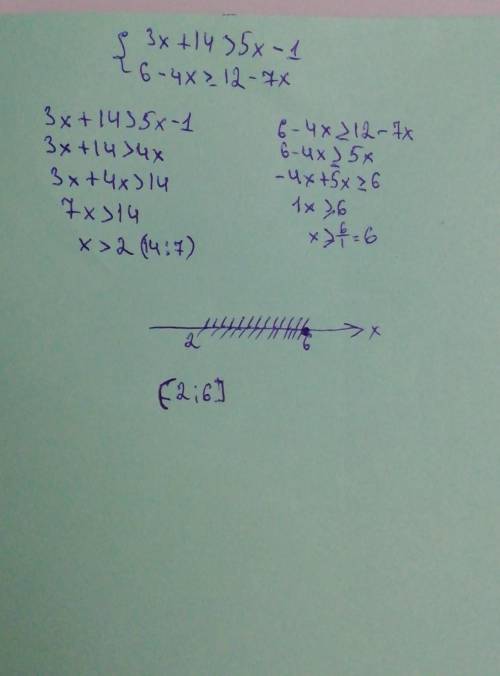 { 3x+14>5x-1
6-4x≥12-7x
3x+14>5x-1
3x+14>4x
3x+4x>14
7x>14
x>2(14:7)
6-4x≥12-7x
6-4x≥5x
-4x+5x≥6
1x≥6
x≥6/1=6
2 6 x
[-2;6]